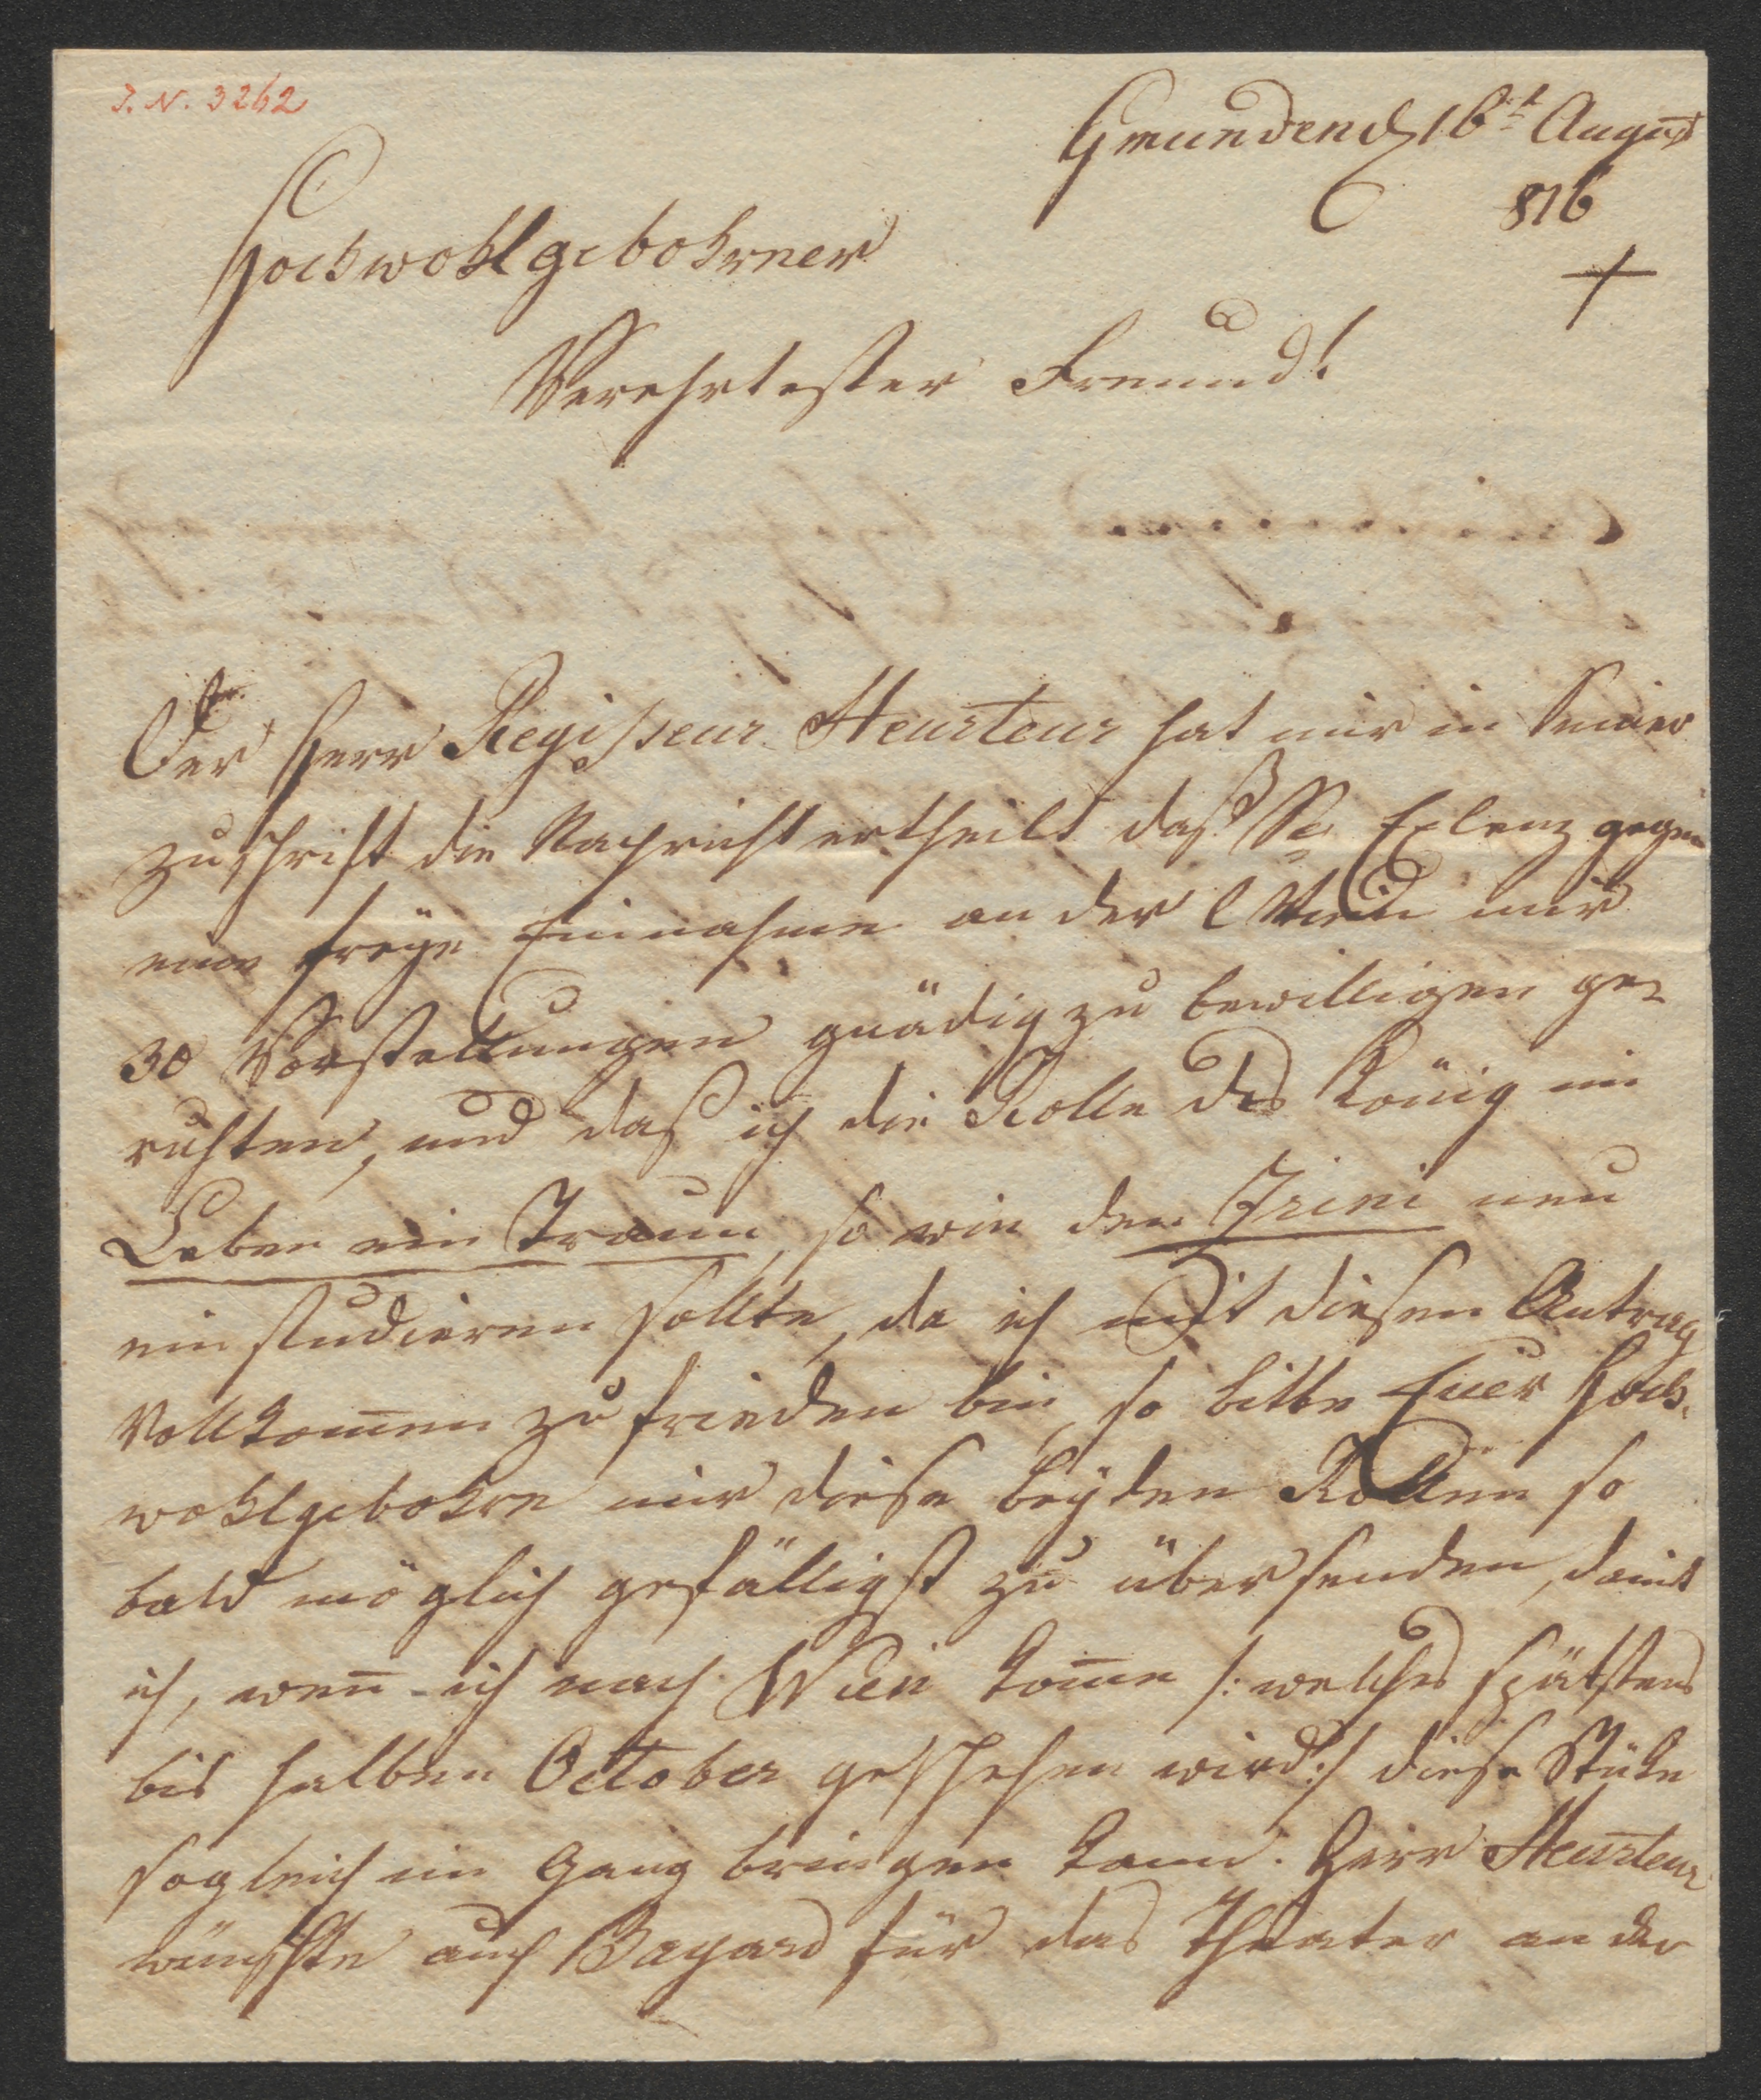 I. N. 3262
Gmunden d 16t August
816
Hochwohlgebohrner
Verehrtester Freund!
Der Herr Regisseur Heurteur hat mir in Seiner
Zuschrift die Nachricht ertheilt daß Se Exlenz gegen
eine freÿe Einnahme an der Wien mir
30 Vorstellungen gnädig zu bewilligen ge-
ruhten, und daß ich die Rolle des König im
Leben ein Traum, so wie den Zrini neu
ein studieren sollte, da ich mit diesen Antrag
Vollkom̄en zu frieden bin, so bitte Euer Hoch-
wohlgebohrn mir diese beÿden Rollen so
bald möglich gefälligst zu übersenden, damit
ich, wen̄ ich nach Wien kom̄e /: welches spätstens
bis halben October geschehen wird :/ diese Stüke
sogleich im Gang bringen kann. Herr Heurteur
wünschte auch Bayard für das Theater an der